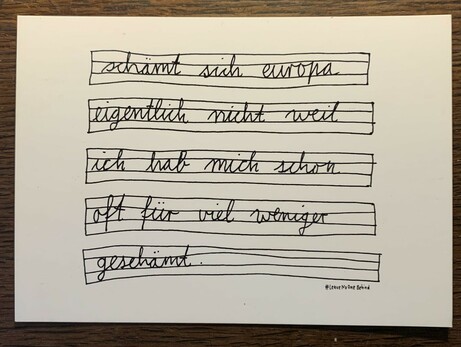 schämt sich europa
eigentlich nicht weil
ich hab mich schon
oft für viel weniger
geschämt.
#LeaveNoOneBehind